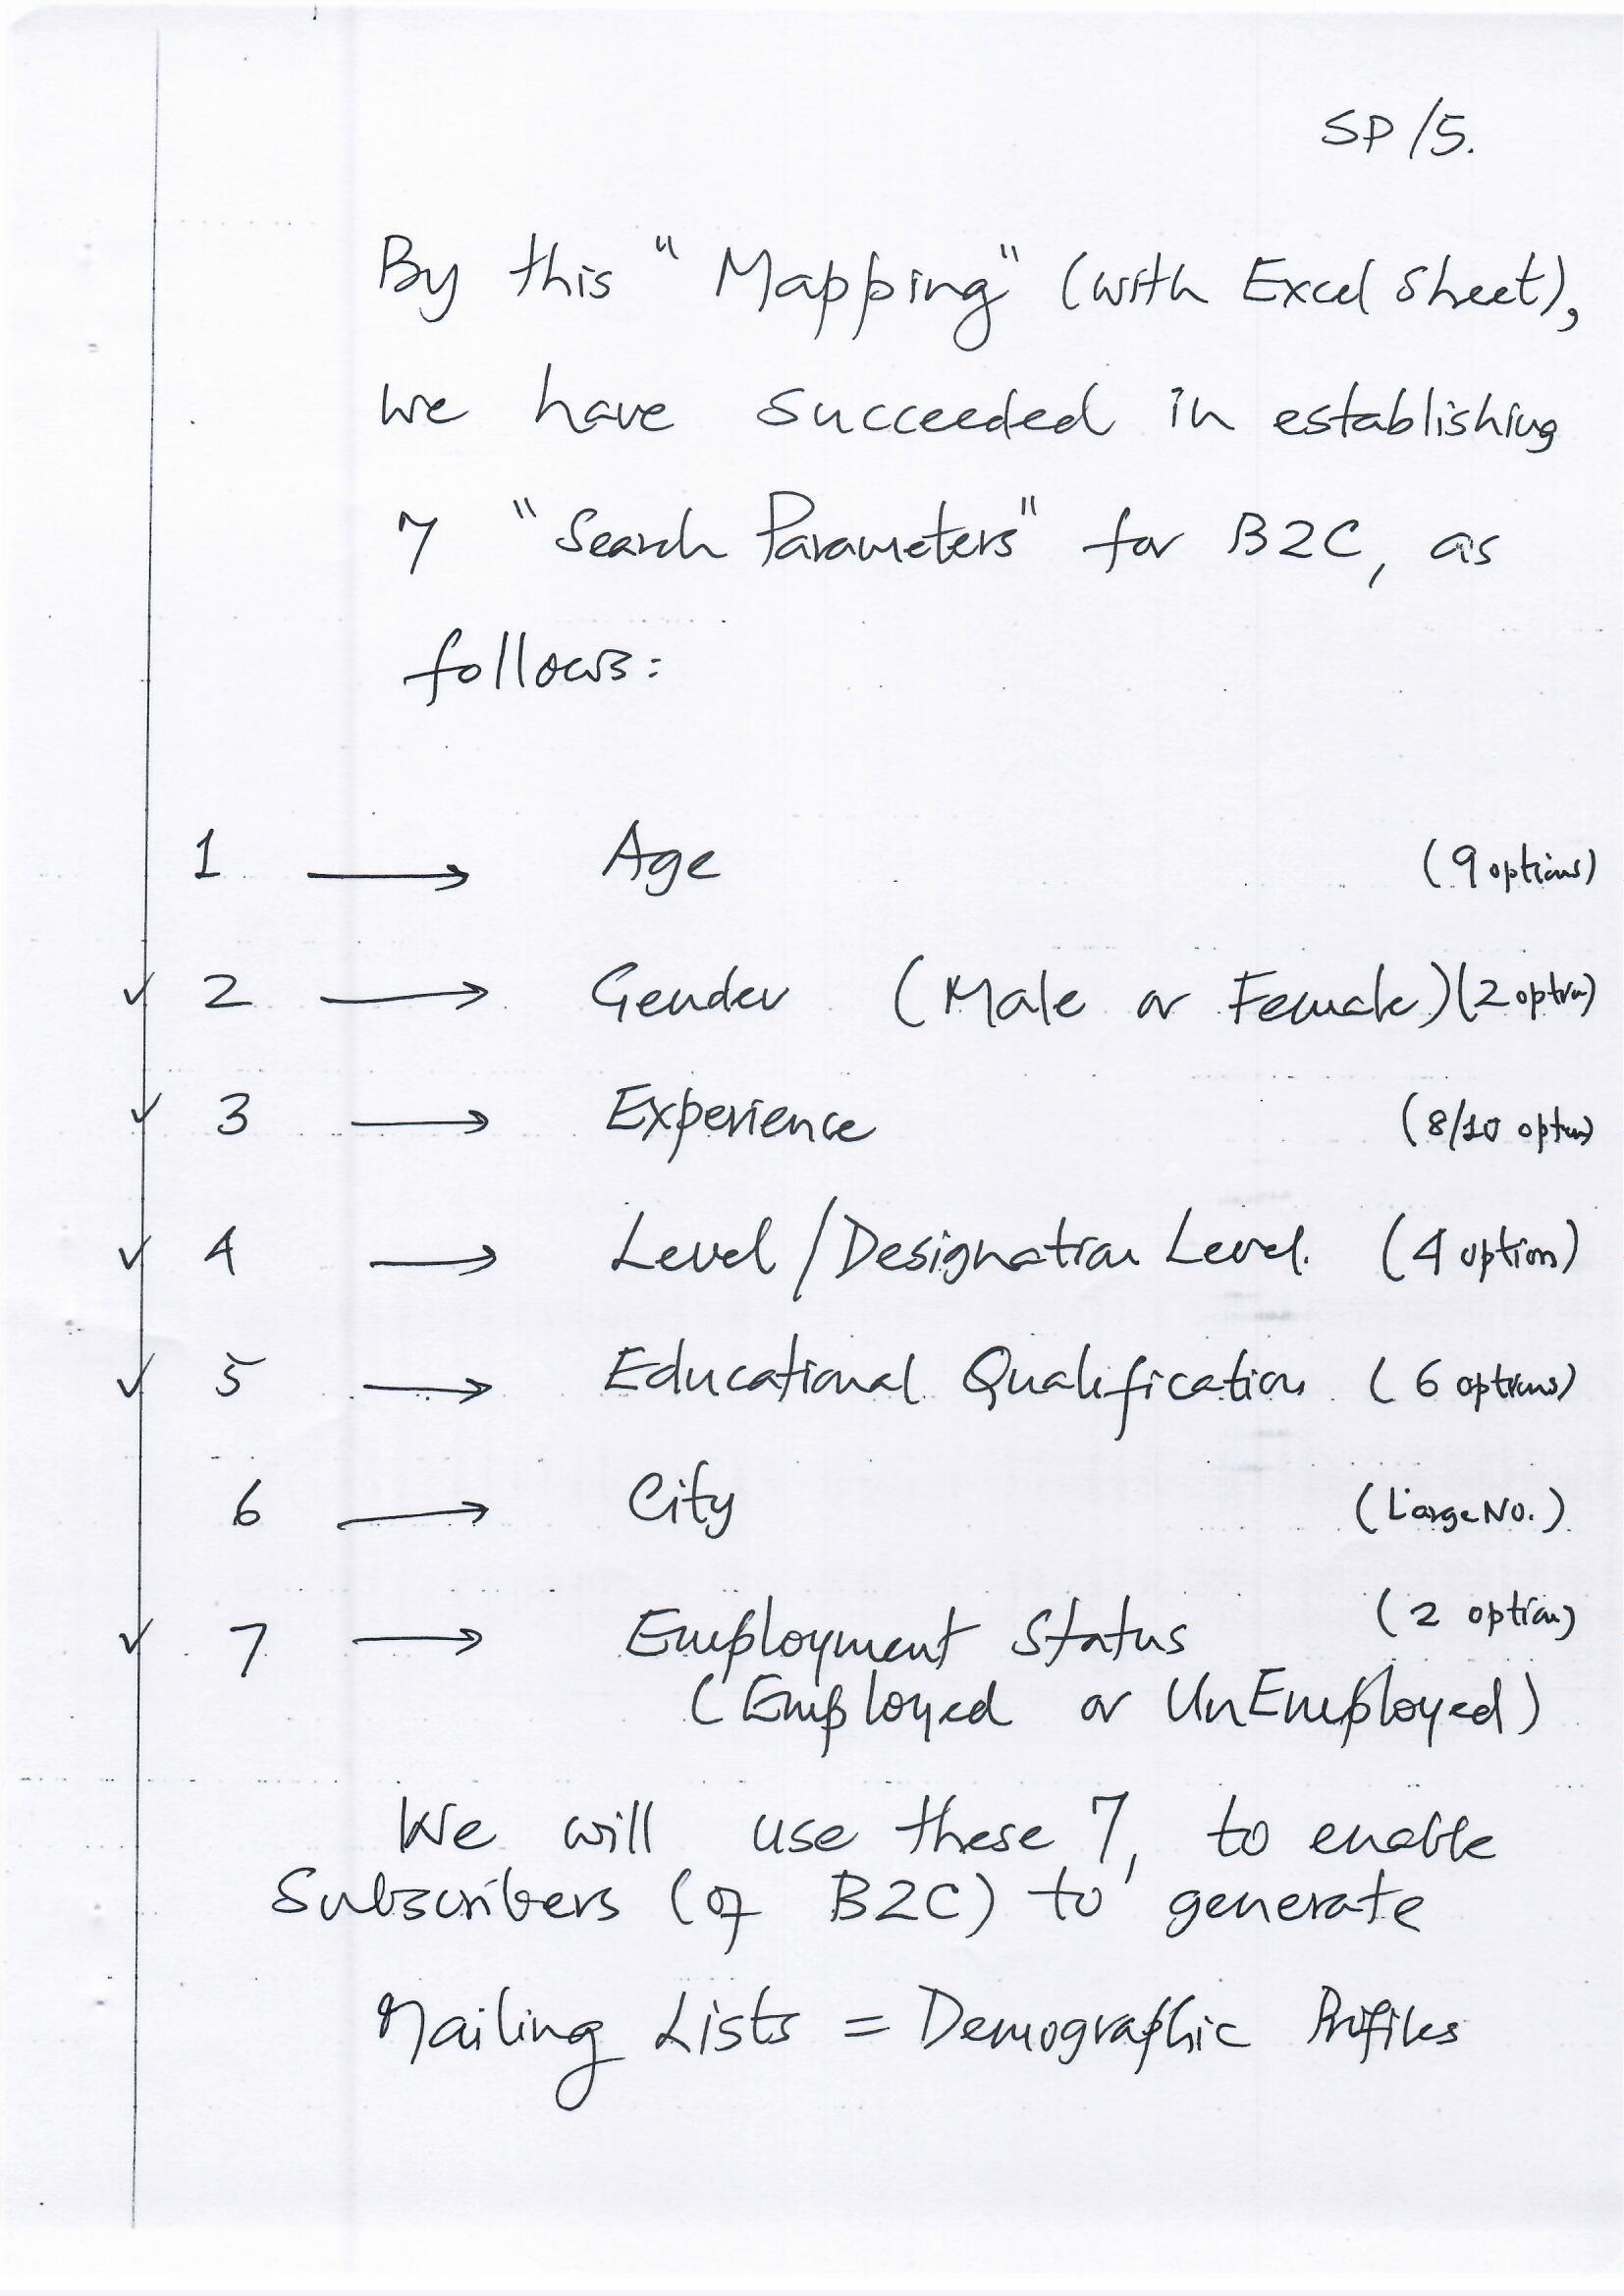 SP/5.
By this "Mapping" (with Excel Sheet),
we have succeeded in establishing
7 "Search Parameters" for B2C, as
follows:
1 → Age (9 options)
✓ 2 → Gender (Male or Female) (2 option)
✓ 3 → Experience (8/10 options)
✓ 4 → Level/Designation Level. (4 option)
✓ 5 → Educational Qualification (6 options)
6 → City (Large No.)
✓ 7 → Employment Status (2 option)
(Employed or UnEmployed)
We will use these 7, to enable
Subscribers (of B2C) to generate
Mailing Lists = Demographic Profiles